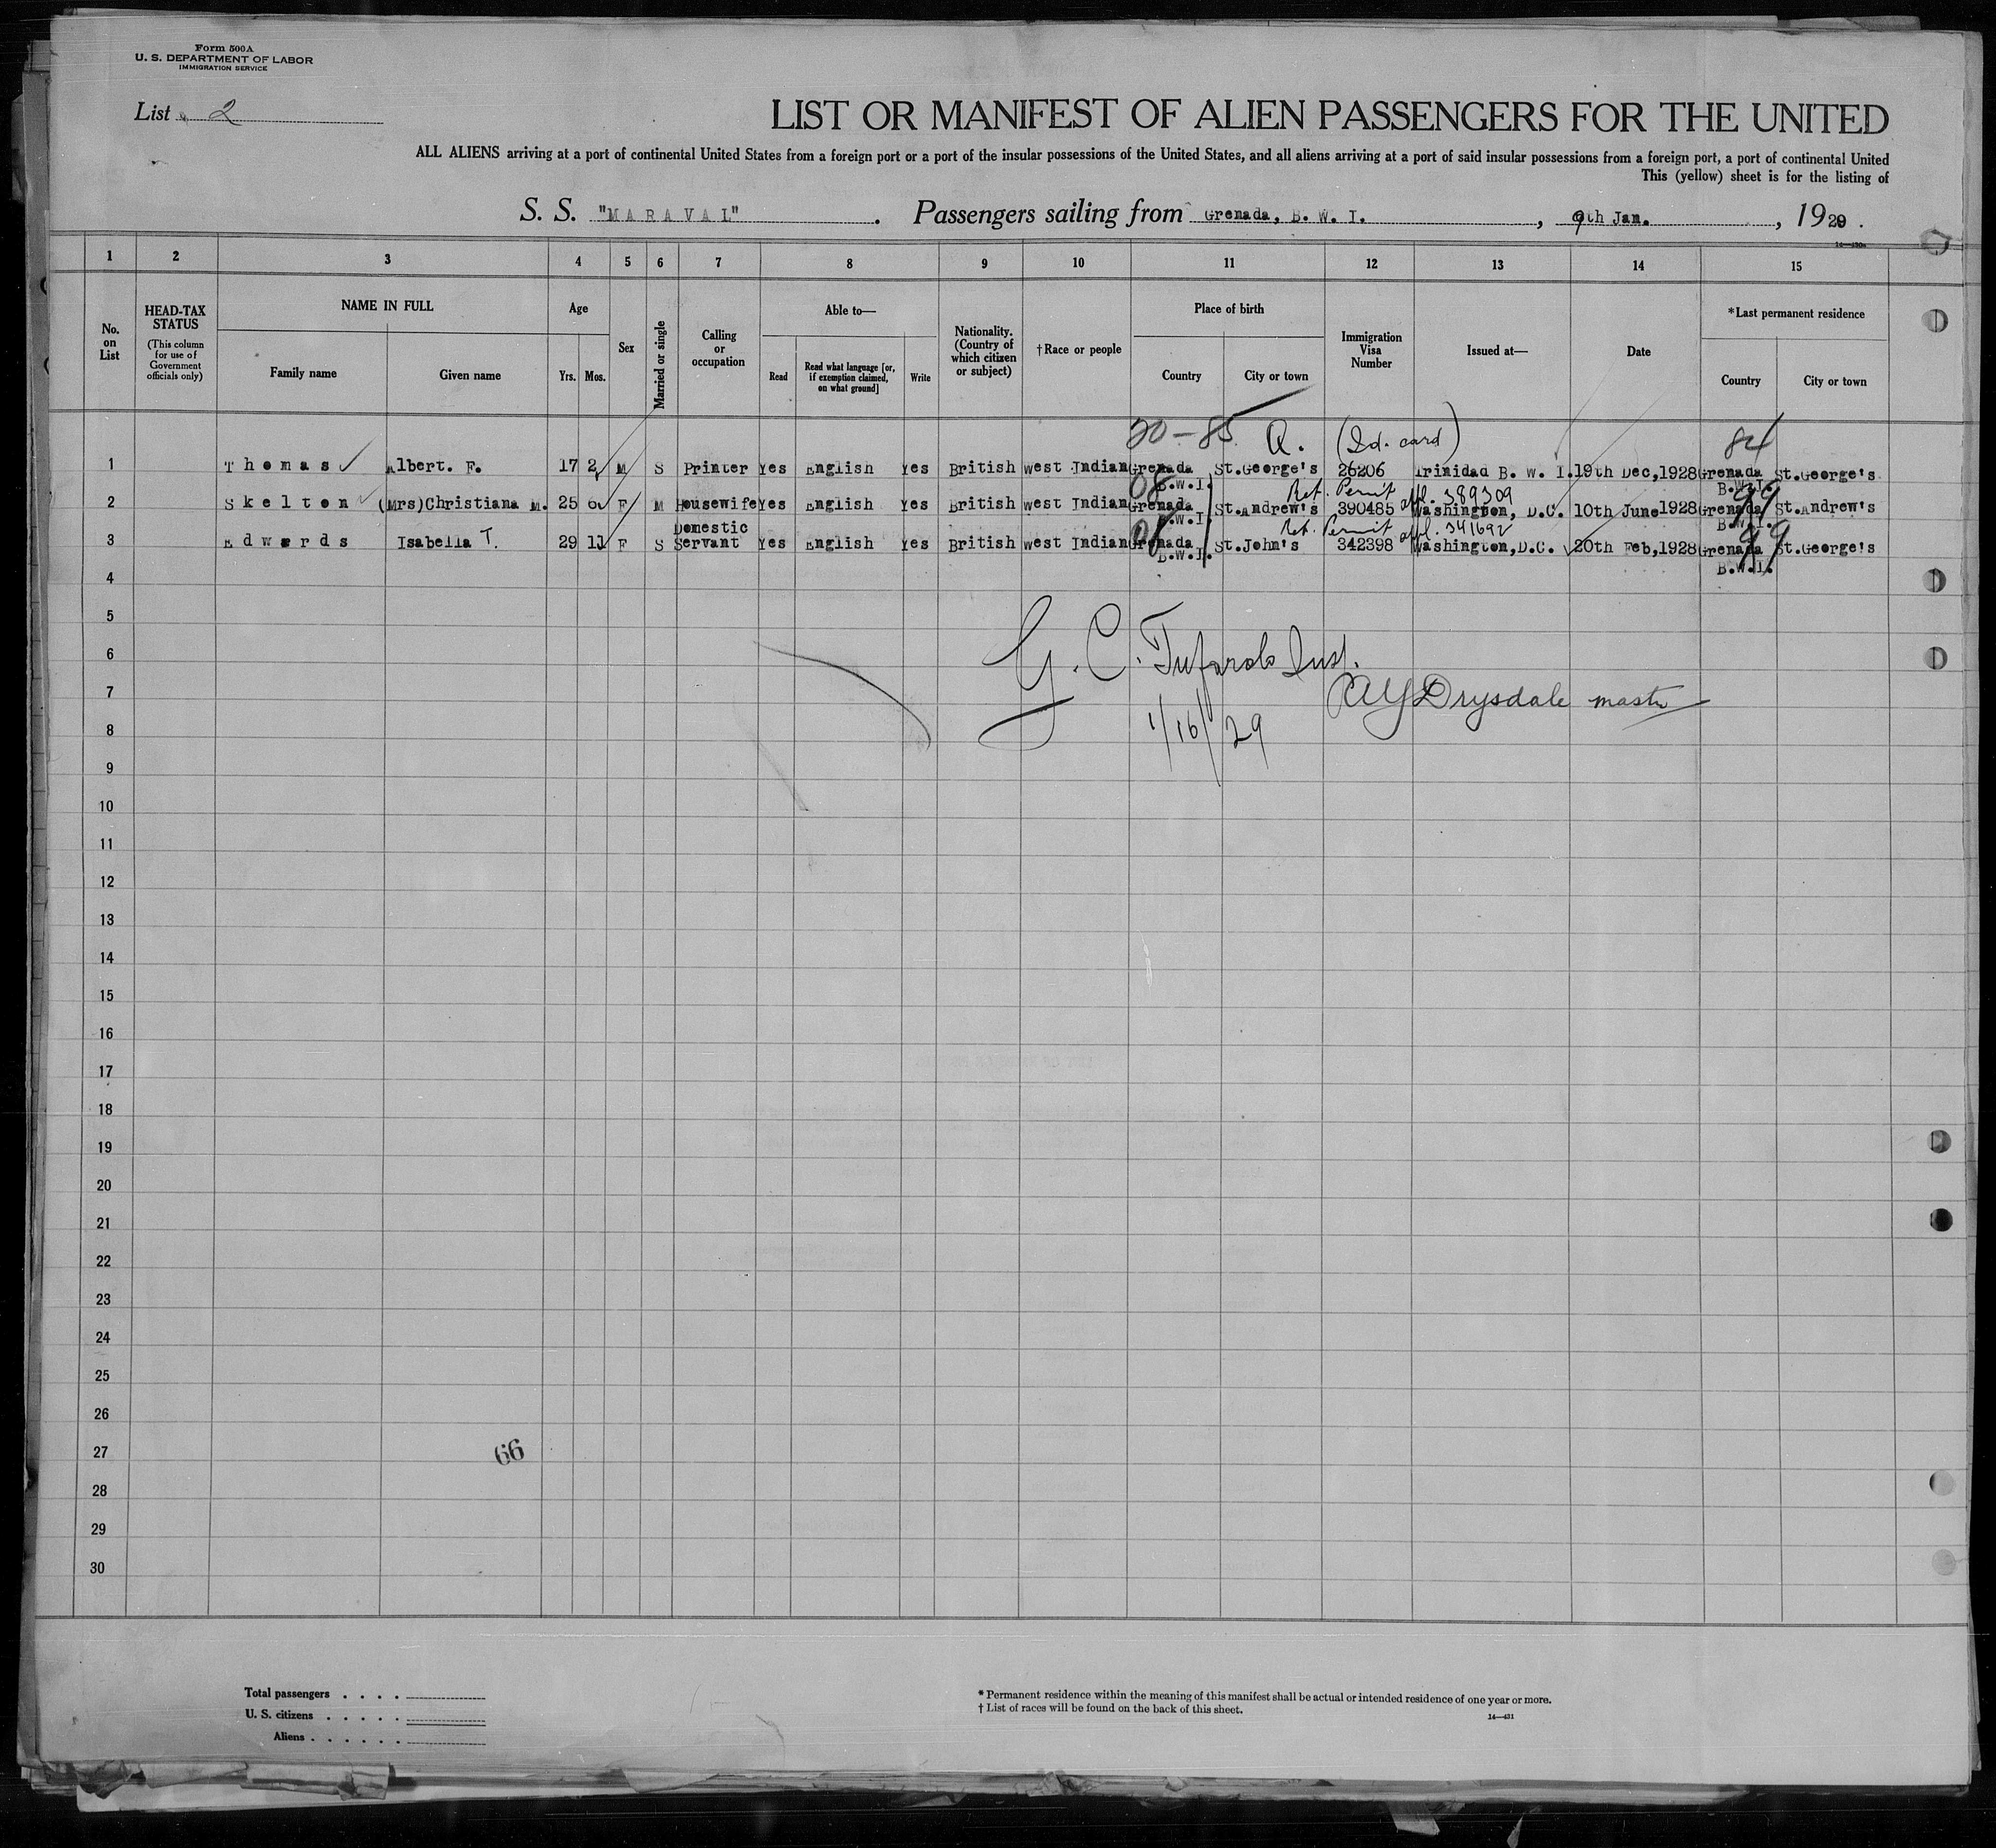 Form 500A
U. S. DEPARTMENT OF LABOR
IMMIGRATION SERVICE
List 2
LIST OR MANIFEST OF ALIEN PASSENGERS FOR THE UNITED
ALL ALIENS arriving at a port of continental United States from a foreign port or a port of the insular possessions of the United States, and all aliens arriving at a port of said insular possessions from a foreign port, a port of continental United
This (yellow) sheet is for the listing of
S. S. "MARAVAL". Passengers sailing from Grenada, B. W. I., 9th Jan., 1929.
1 2 3 4 5 6 7 8 9 10 11 12 13 14 15
No. on List
HEAD-TAX STATUS
(This column for use of Government officials only)
NAME IN FULL
Family name Given name
Age
Yrs. Mos.
Sex
Married or single
Calling or occupation
Able to—
Read
Read what language [or, if exemption claimed, on what ground]
Write
Nationality. (Country of which citizen or subject)
†Race or people
Place of birth
Country City or town
Immigration Visa Number
Issued at—
Date
*Last permanent residence
Country City or town
20-85 Q. (Id. card) 84
1 Thomas Albert. F. 17 2 M S Printer Yes English Yes British West Indian Grenada St.George's 26206 Trinidad B. W. I. 19th Dec,1928 Grenada St.George's
08 B.W.I. Ret. Permit appl. 389309 B.W.I. 99
2 Skelton (Mrs)Christiana M. 25 6 F M Housewife Yes English Yes British West Indian Grenada St.Andrew's 390485 Washington, D.C. 10th June 1928 Grenada St.Andrew's
Domestic B.W.I. Ret. Permit appl. 341692 B.W.I.
3 Edwards Isabella T. 29 11 F S Servant Yes English Yes British West Indian Grenada St.John's 342398 Washington,D.C. 20th Feb,1928 Grenada St.George's
08 B.W.I. 99 B.W.I.
4
5
6
G. C. Tufarolo Insp.
7
A Y Drysdale master
8
1/16/29
9
10
11
12
13
14
15
16
17
18
19
20
21
22
23
24
25
26
27
66
28
29
30
Total passengers
U. S. citizens
Aliens
* Permanent residence within the meaning of this manifest shall be actual or intended residence of one year or more.
† List of races will be found on the back of this sheet.
14—431